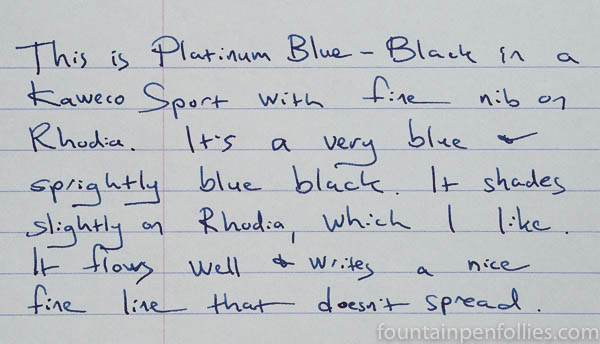 This is Platinum Blue-Black in a
Kaweco Sport with fine nib on
Rhodia. It's a very blue &
sprightly blue black. It shades
slightly on Rhodia, which I like.
It flows well & writes a nice
fine line that doesn't spread.
fountainpenfollies.com